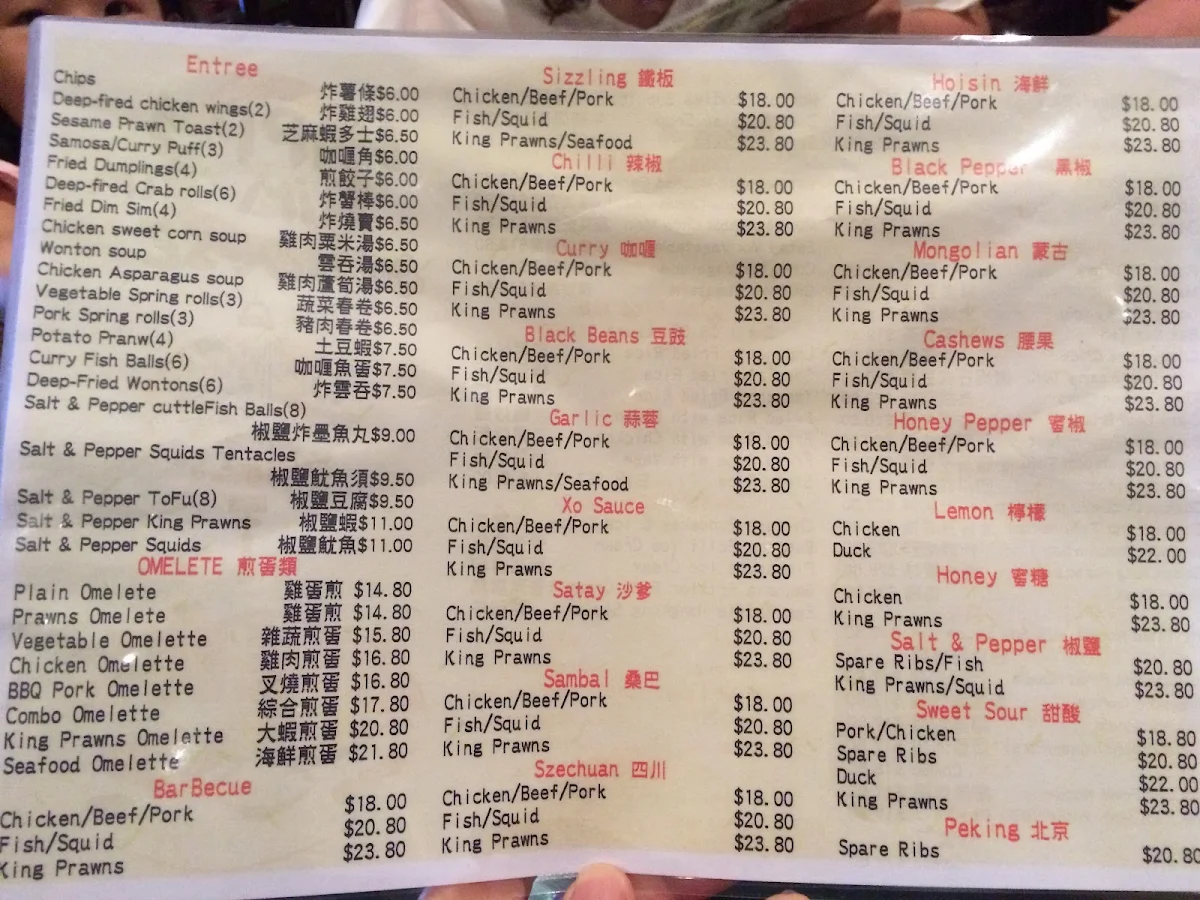 Entree
Chips 炸薯條$6.00
Deep-fired chicken wings(2) 炸雞翅$6.00
Sesame Prawn Toast(2) 芝麻蝦多士$6.50
Samosa/Curry Puff(3) 咖喱角$6.00
Fried Dumplings(4) 煎餃子$6.00
Deep-fired Crab rolls(6) 炸蟹棒$6.00
Fried Dim Sim(4) 炸燒賣$6.50
Chicken sweet corn soup 雞肉粟米湯$6.50
Wonton soup 雲吞湯$6.50
Chicken Asparagus soup 雞肉蘆筍湯$6.50
Vegetable Spring rolls(3) 蔬菜春卷$6.50
Pork Spring rolls(3) 豬肉春卷$6.50
Potato Pranw(4) 土豆蝦$7.50
Curry Fish Balls(6) 咖喱魚蛋$7.50
Deep-Fried Wontons(6) 炸雲吞$7.50
Salt & Pepper cuttleFish Balls(8)
椒鹽炸墨魚丸$9.00
Salt & Pepper Squids Tentacles
椒鹽魷魚須$9.50
Salt & Pepper ToFu(8) 椒鹽豆腐$9.50
Salt & Pepper King Prawns 椒鹽蝦$11.00
Salt & Pepper Squids 椒鹽魷魚$11.00
OMELETE 煎蛋類
Plain Omelete 雞蛋煎 $14.80
Prawns Omelete 雞蛋煎 $14.80
Vegetable Omelette 雜蔬煎蛋 $15.80
Chicken Omelette 雞肉煎蛋 $16.80
BBQ Pork Omelette 叉燒煎蛋 $16.80
Combo Omelette 綜合煎蛋 $17.80
King Prawns Omelette 大蝦煎蛋 $20.80
Seafood Omelette 海鮮煎蛋 $21.80
BarBecue
Chicken/Beef/Pork $18.00
Fish/Squid $20.80
King Prawns $23.80
Sizzling 鐵板
Chicken/Beef/Pork $18.00
Fish/Squid $20.80
King Prawns/Seafood $23.80
Chilli 辣椒
Chicken/Beef/Pork $18.00
Fish/Squid $20.80
King Prawns $23.80
Curry 咖喱
Chicken/Beef/Pork $18.00
Fish/Squid $20.80
King Prawns $23.80
Black Beans 豆豉
Chicken/Beef/Pork $18.00
Fish/Squid $20.80
King Prawns $23.80
Garlic 蒜蓉
Chicken/Beef/Pork $18.00
Fish/Squid $20.80
King Prawns/Seafood $23.80
Xo Sauce
Chicken/Beef/Pork $18.00
Fish/Squid $20.80
King Prawns $23.80
Satay 沙爹
Chicken/Beef/Pork $18.00
Fish/Squid $20.80
King Prawns $23.80
Sambal 桑巴
Chicken/Beef/Pork $18.00
Fish/Squid $20.80
King Prawns $23.80
Szechuan 四川
Chicken/Beef/Pork $18.00
Fish/Squid $20.80
King Prawns $23.80
Hoisin 海鮮
Chicken/Beef/Pork $18.00
Fish/Squid $20.80
King Prawns $23.80
Black Pepper 黑椒
Chicken/Beef/Pork $18.00
Fish/Squid $20.80
King Prawns $23.80
Mongolian 蒙古
Chicken/Beef/Pork $18.00
Fish/Squid $20.80
King Prawns $23.80
Cashews 腰果
Chicken/Beef/Pork $18.00
Fish/Squid $20.80
King Prawns $23.80
Honey Pepper 蜜椒
Chicken/Beef/Pork $18.00
Fish/Squid $20.80
King Prawns $23.80
Lemon 檸檬
Chicken $18.00
Duck $22.00
Honey 蜜糖
Chicken $18.00
King Prawns $23.80
Salt & Pepper 椒鹽
Spare Ribs/Fish $20.80
King Prawns/Squid $23.80
Sweet Sour 甜酸
Pork/Chicken $18.80
Spare Ribs $20.80
Duck $22.00
King Prawns $23.80
Peking 北京
Spare Ribs $20.80